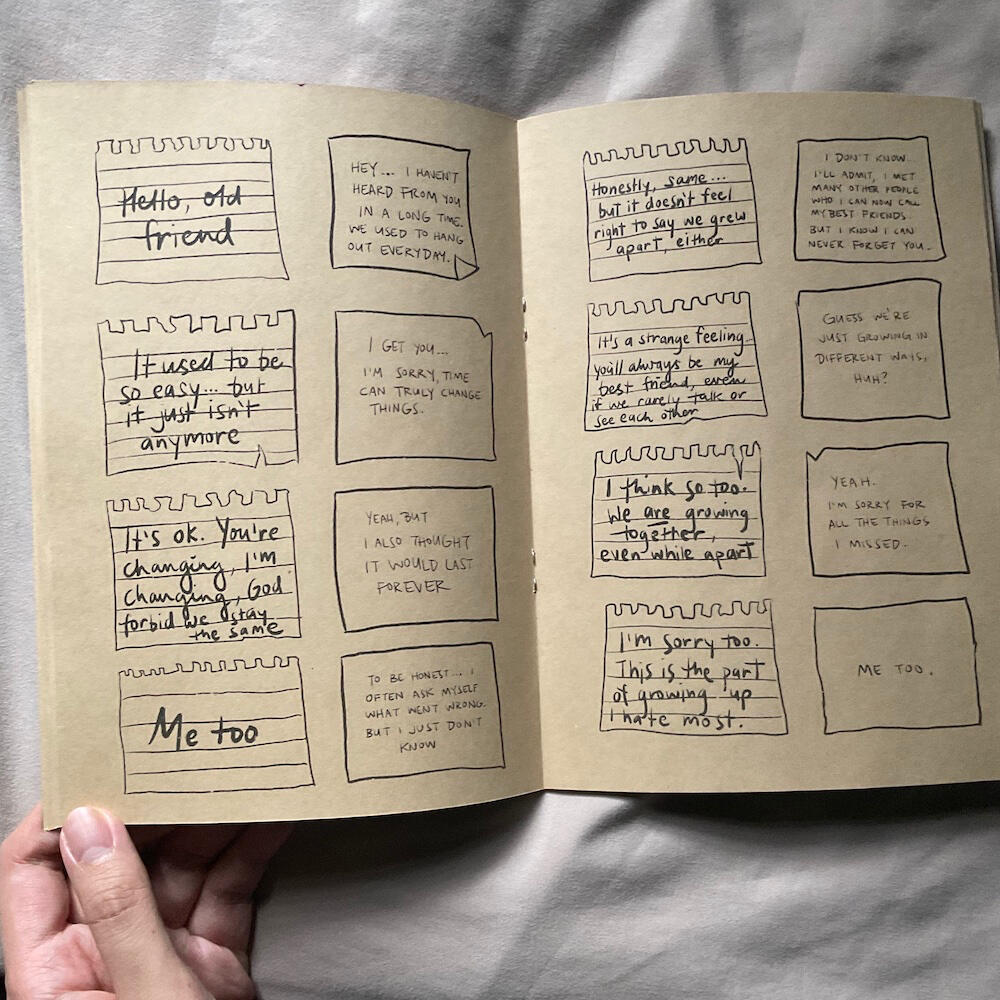 Hello, old
friend
HEY... I HAVEN'T
HEARD FROM YOU
IN A LONG TIME.
WE USED TO HANG
OUT EVERYDAY.
It used to be
so easy... but
it just isn't
anymore
I GET YOU...
I'M SORRY, TIME
CAN TRULY CHANGE
THINGS.
It's ok. You're
changing, I'm
changing, God
forbid we stay
the same
YEAH, BUT
I ALSO THOUGHT
IT WOULD LAST
FOREVER
Me too
TO BE HONEST... I
OFTEN ASK MYSELF
WHAT WENT WRONG.
BUT I JUST DON'T
KNOW
Honestly, same...
but it doesn't feel
right to say we grew
apart, either
I DON'T KNOW...
I'LL ADMIT, I MET
MANY OTHER PEOPLE
WHO I CAN NOW CALL
MY BEST FRIENDS.
BUT I KNOW I CAN
NEVER FORGET YOU.
It's a strange feeling..
you'll always be my
best friend, even
if we rarely talk or
see each other
GUESS WE'RE
JUST GROWING IN
DIFFERENT WAYS,
HUH?
I think so too.
We are growing
together,
even while apart
YEAH.
I'M SORRY FOR
ALL THE THINGS
I MISSED.
I'm sorry too.
This is the part
of growing up
I hate most.
ME TOO.